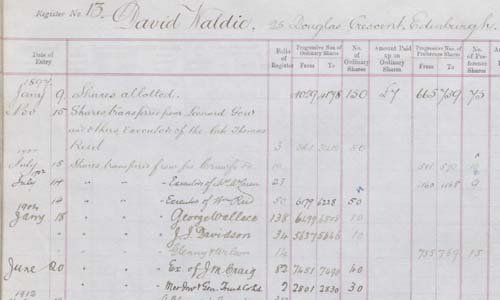 Register No. 13. David Waldie. 25 Douglas Crescent, Edinburgh.
Date of Entry
Folio of Register
Progressive Nos. of Ordinary Shares
From To
No. of Ordinary Shares
Amount Paid up on Ordinary Shares
Progressive Nos. of Preference Shares
From To
No. of Preference Shares
1897
Jany 9 Shares allotted. 4029 4178 150 £7 665 739 75
Nov 15 Shares transferred from Leonard Gow
and others Executors of the late Thomas
Reid 3 50
July 15 Shares transfer from
1902
July 14 " " Executors of 23 1160 1168 9
" 14 " " Executors of Wm Reid 50 6179 6228 50
1904
Jany 18 " " George Wallace 138 6499 6508 10
" " J. J. Davidson 34 5637 5646 10
" " 14 755 769 15
June 20 " " Ex. of J. M. Craig 82 7451 7490 40
" " Gen. Trust Co Ld 2 2801 2830 30
1912